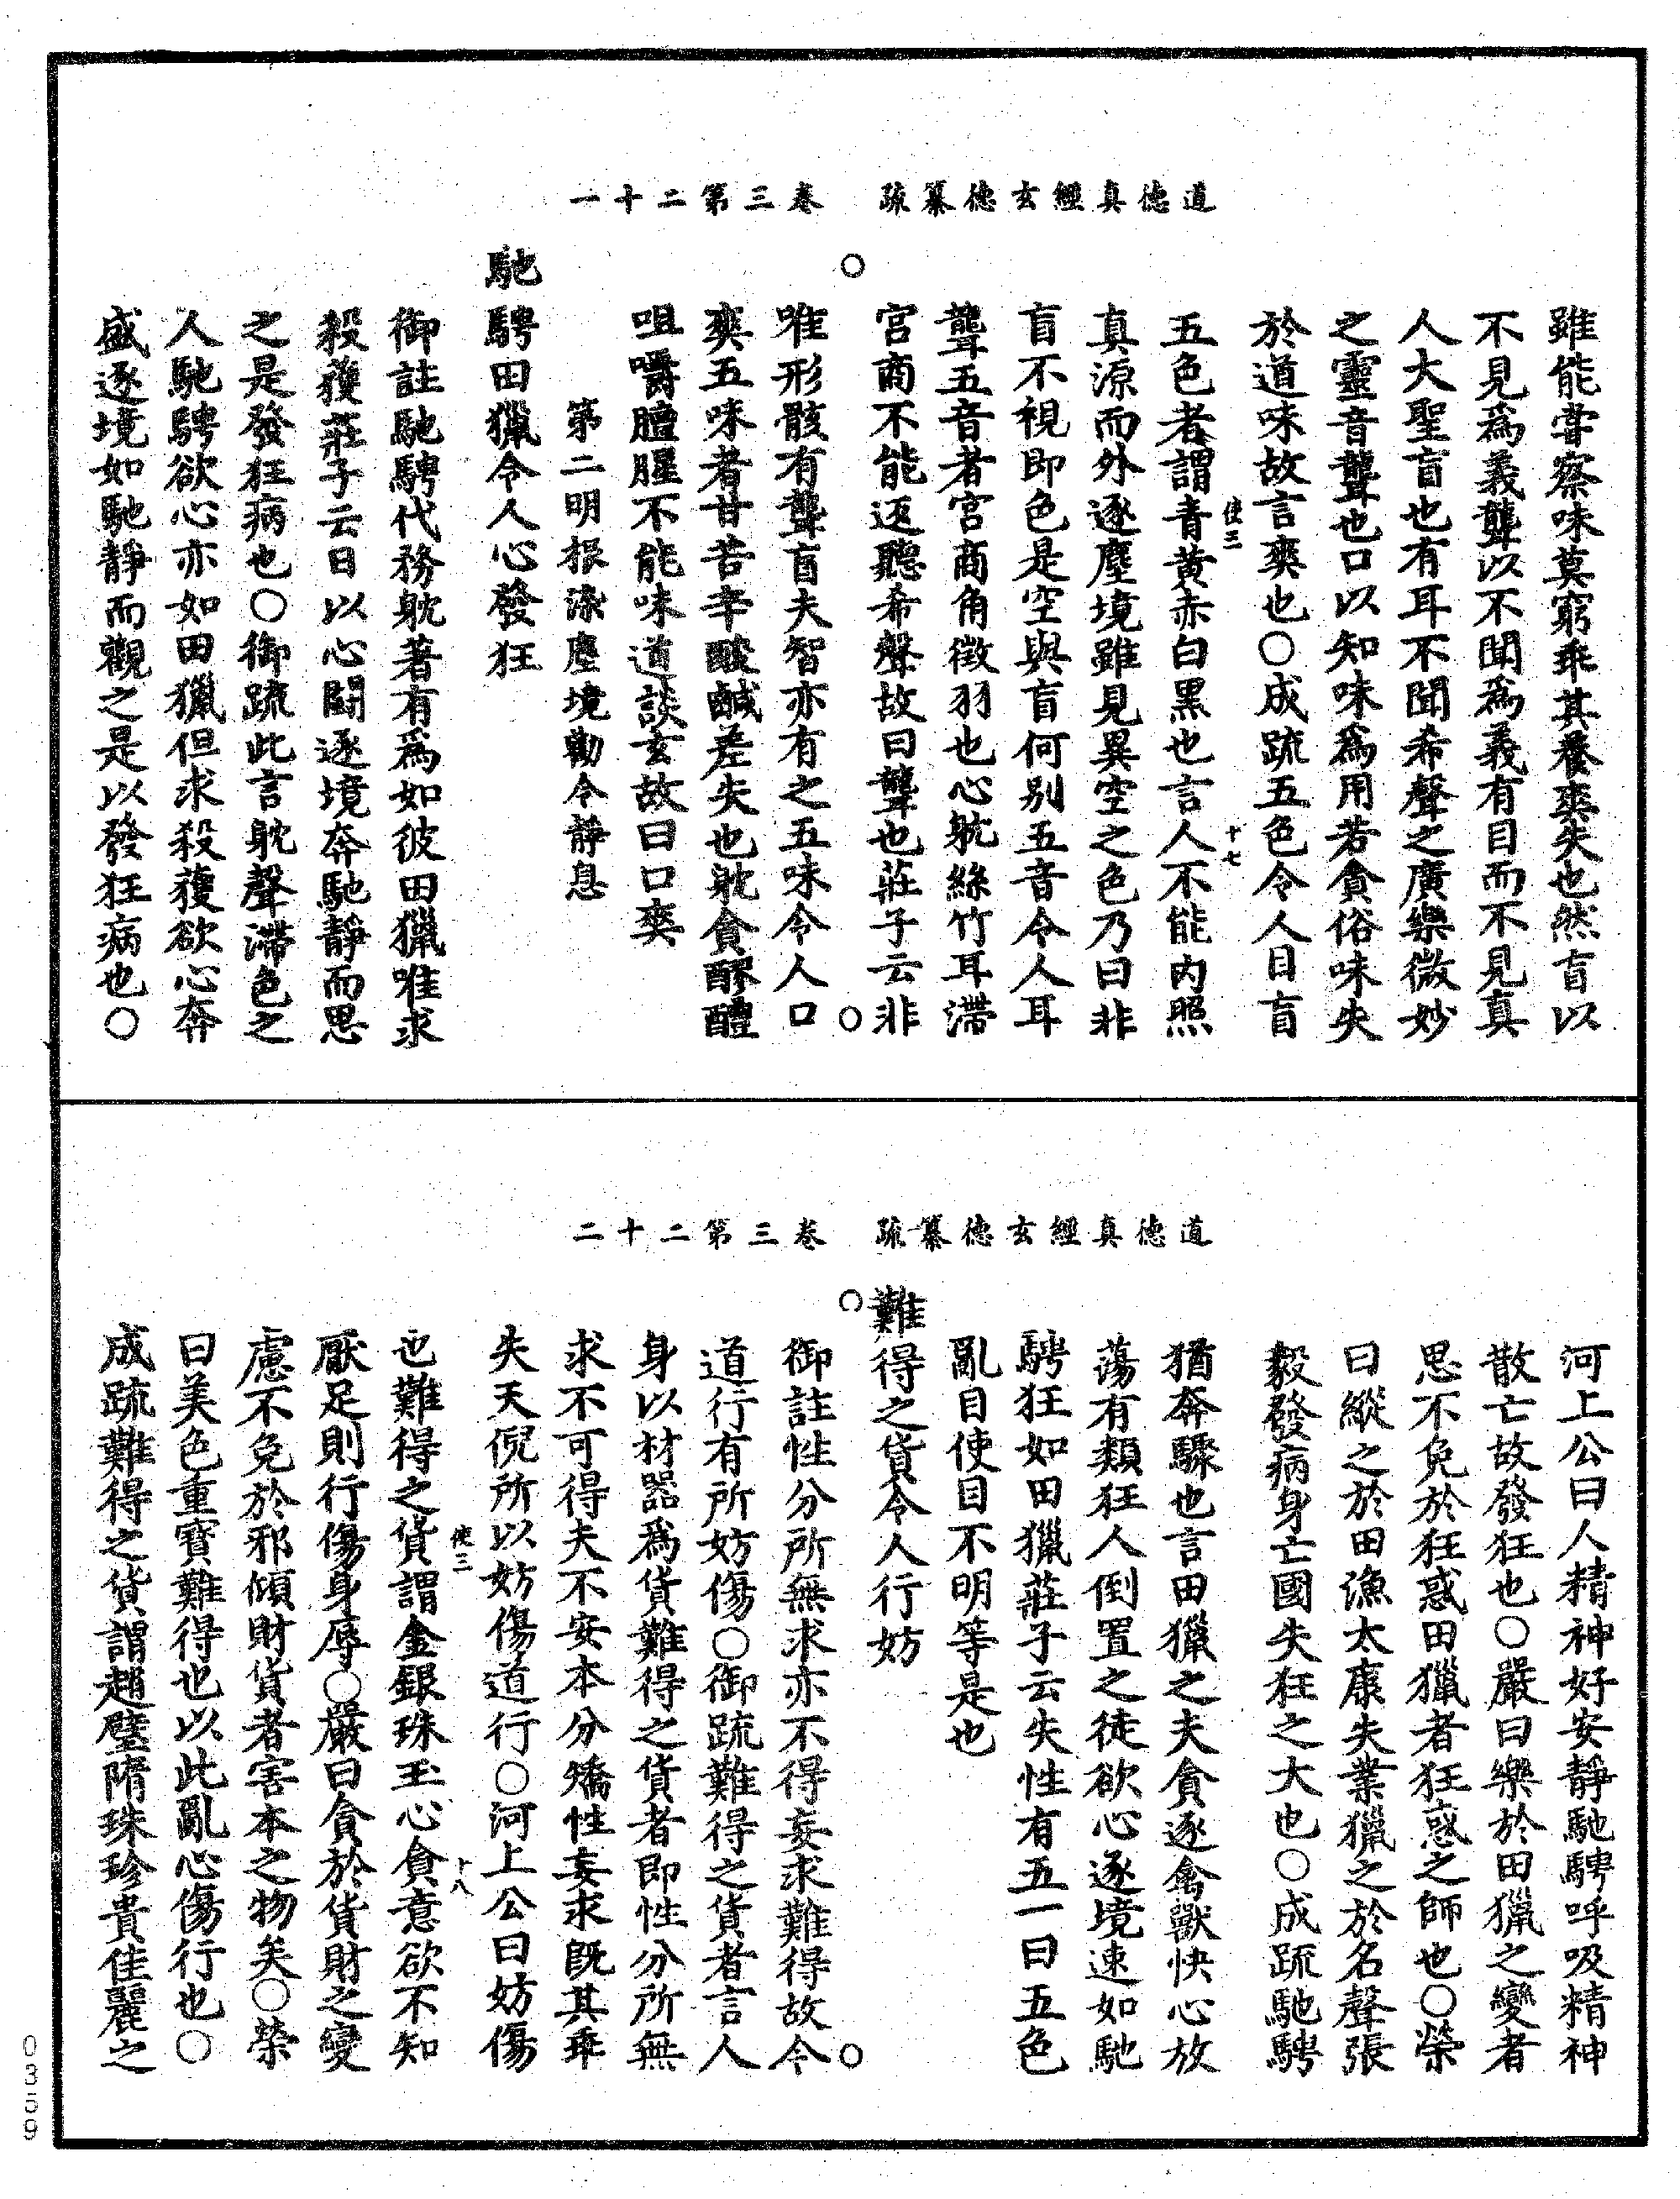 道德真經玄德纂疏　卷三第二十一
雖能甞察味莫窮乖其養爽失也然盲以
不見爲義聾以不聞爲義有目而不見真
人大聖盲也有耳不聞希聲之廣樂微妙
之靈音聾也口以知味爲用若貪俗味失
於道味故言爽也○成疏五色令人目盲
使三　十七
五色者謂青黃赤白黑也言人不能内照
真源而外逐塵境雖見異空之色乃曰非
盲不視即色是空與盲何別五音令人耳
聾五音者宮商角徵羽也心躭絲竹耳滯
宮商不能返聽希聲故曰聾也莊子云非
唯形骸有聾盲夫智亦有之五味令人口
爽五味者甘苦辛酸鹹差失也躭貪醪醴
咀嚼膻腥不能味道談玄故曰口爽
第二明根染塵境勸令靜息
馳騁田獵令人心發狂
御註馳騁代務躭著有爲如彼田獵唯求
殺獲莊子云日以心鬪逐境奔馳靜而思
之是發狂病也○御疏此言躭聲滯色之
人馳騁欲心亦如田獵但求殺獲欲心奔
盛逐境如馳靜而觀之是以發狂病也○
道德真經玄德纂疏　卷三第二十二
河上公曰人精神好安靜馳騁呼吸精神
散亡故發狂也○嚴曰樂於田獵之變者
思不免於狂惑田獵者狂惑之師也○榮
曰縱之於田漁太康失業獵之於名聲張
毅發病身亡國失狂之大也○成疏馳騁
猶奔驟也言田獵之夫貪逐禽獸快心放
蕩有類狂人倒置之徒欲心逐境速如馳
騁狂如田獵莊子云失性有五一曰五色
亂目使目不明等是也
難得之貨令人行妨
御註性分所無求亦不得妄求難得故令
道行有所妨傷○御疏難得之貨者言人
身以材器爲貨難得之貨者即性分所無
求不可得夫不安本分矯性妄求既其乖
失天倪所以妨傷道行○河上公曰妨傷
使三　十八
也難得之貨謂金銀珠玉心貪意欲不知
厭足則行傷身辱○嚴曰貪於貨財之變
慮不免於邪傾財貨者害本之物矣○榮
曰美色重寶難得也以此亂心傷行也○
成疏難得之貨謂趙璧隋珠珍貴佳麗之
0359